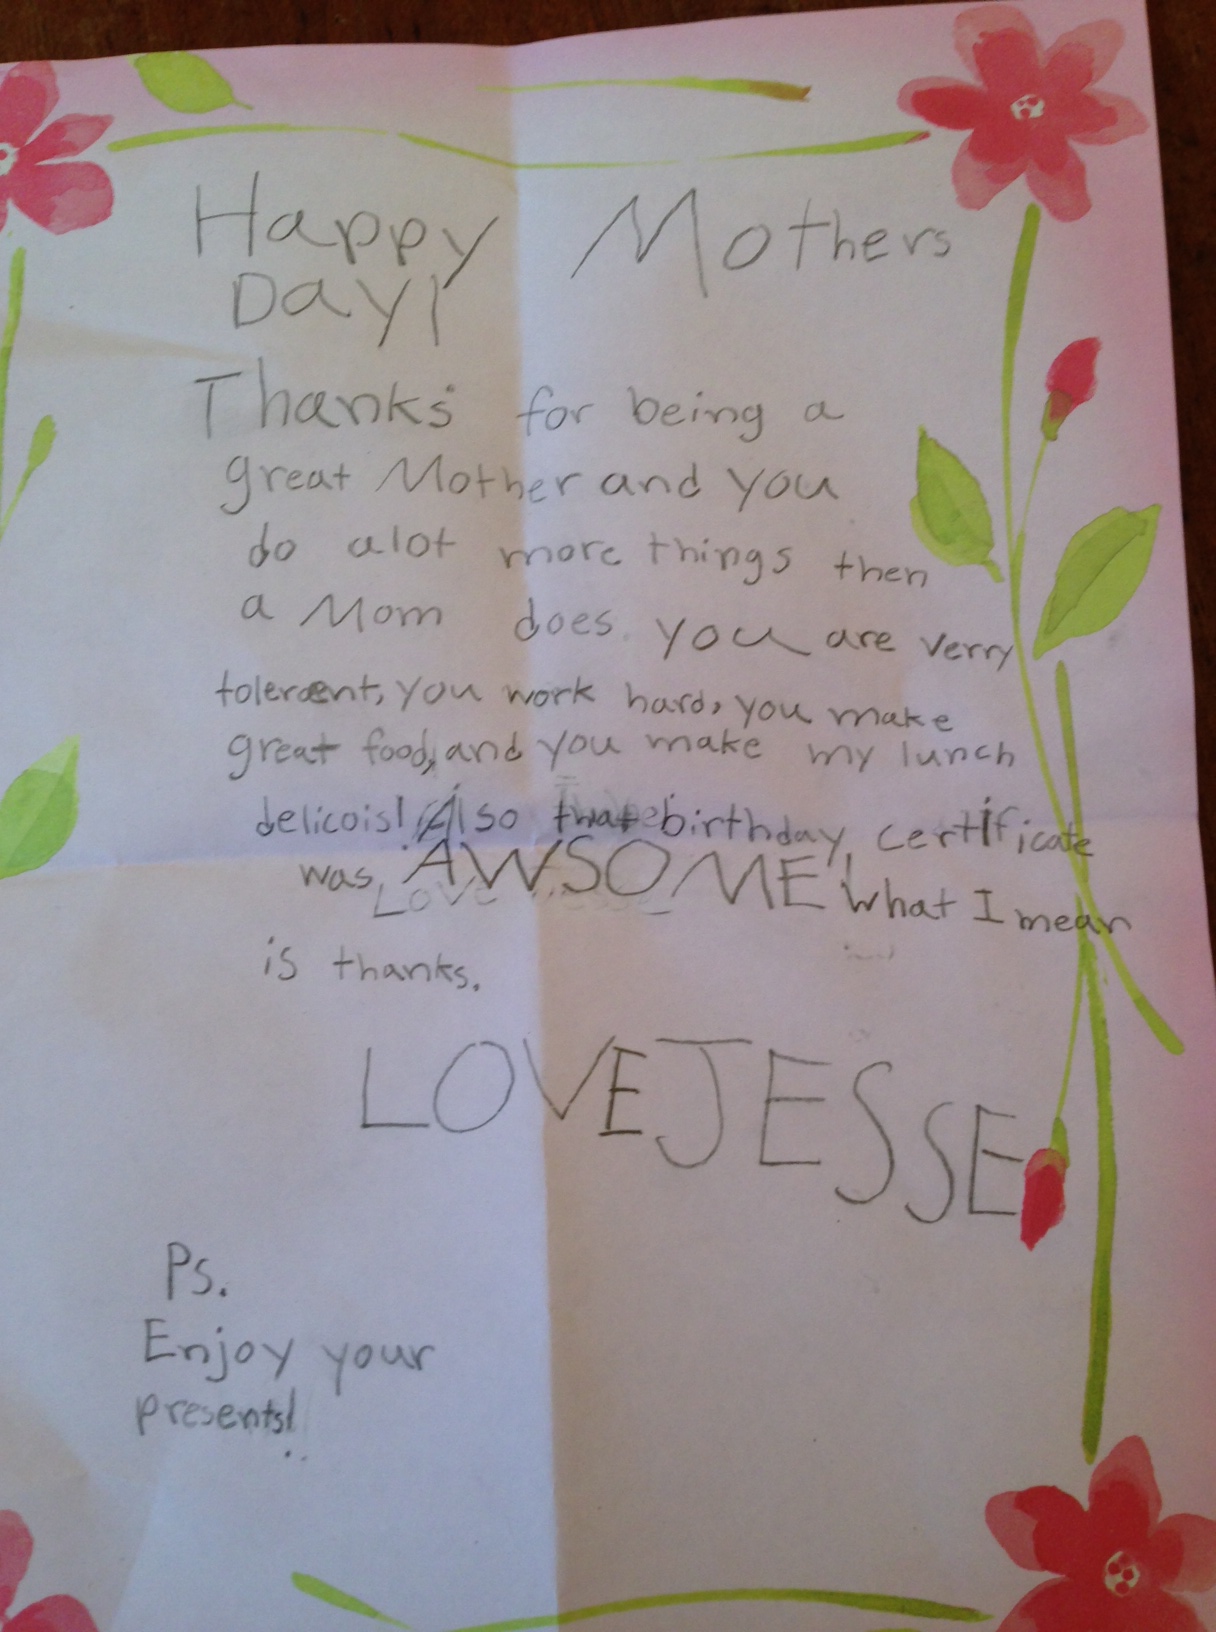 Happy Mothers
Day!
Thanks for being a
great Mother and you
do alot more things then
a Mom does. you are verry
tolerent, you work hard, you make
great food, and you make my lunch
delicois! Also that birthday certificate
was AWSOME! what I mean
is thanks.
LOVE JESSE
Ps.
Enjoy your
presents!